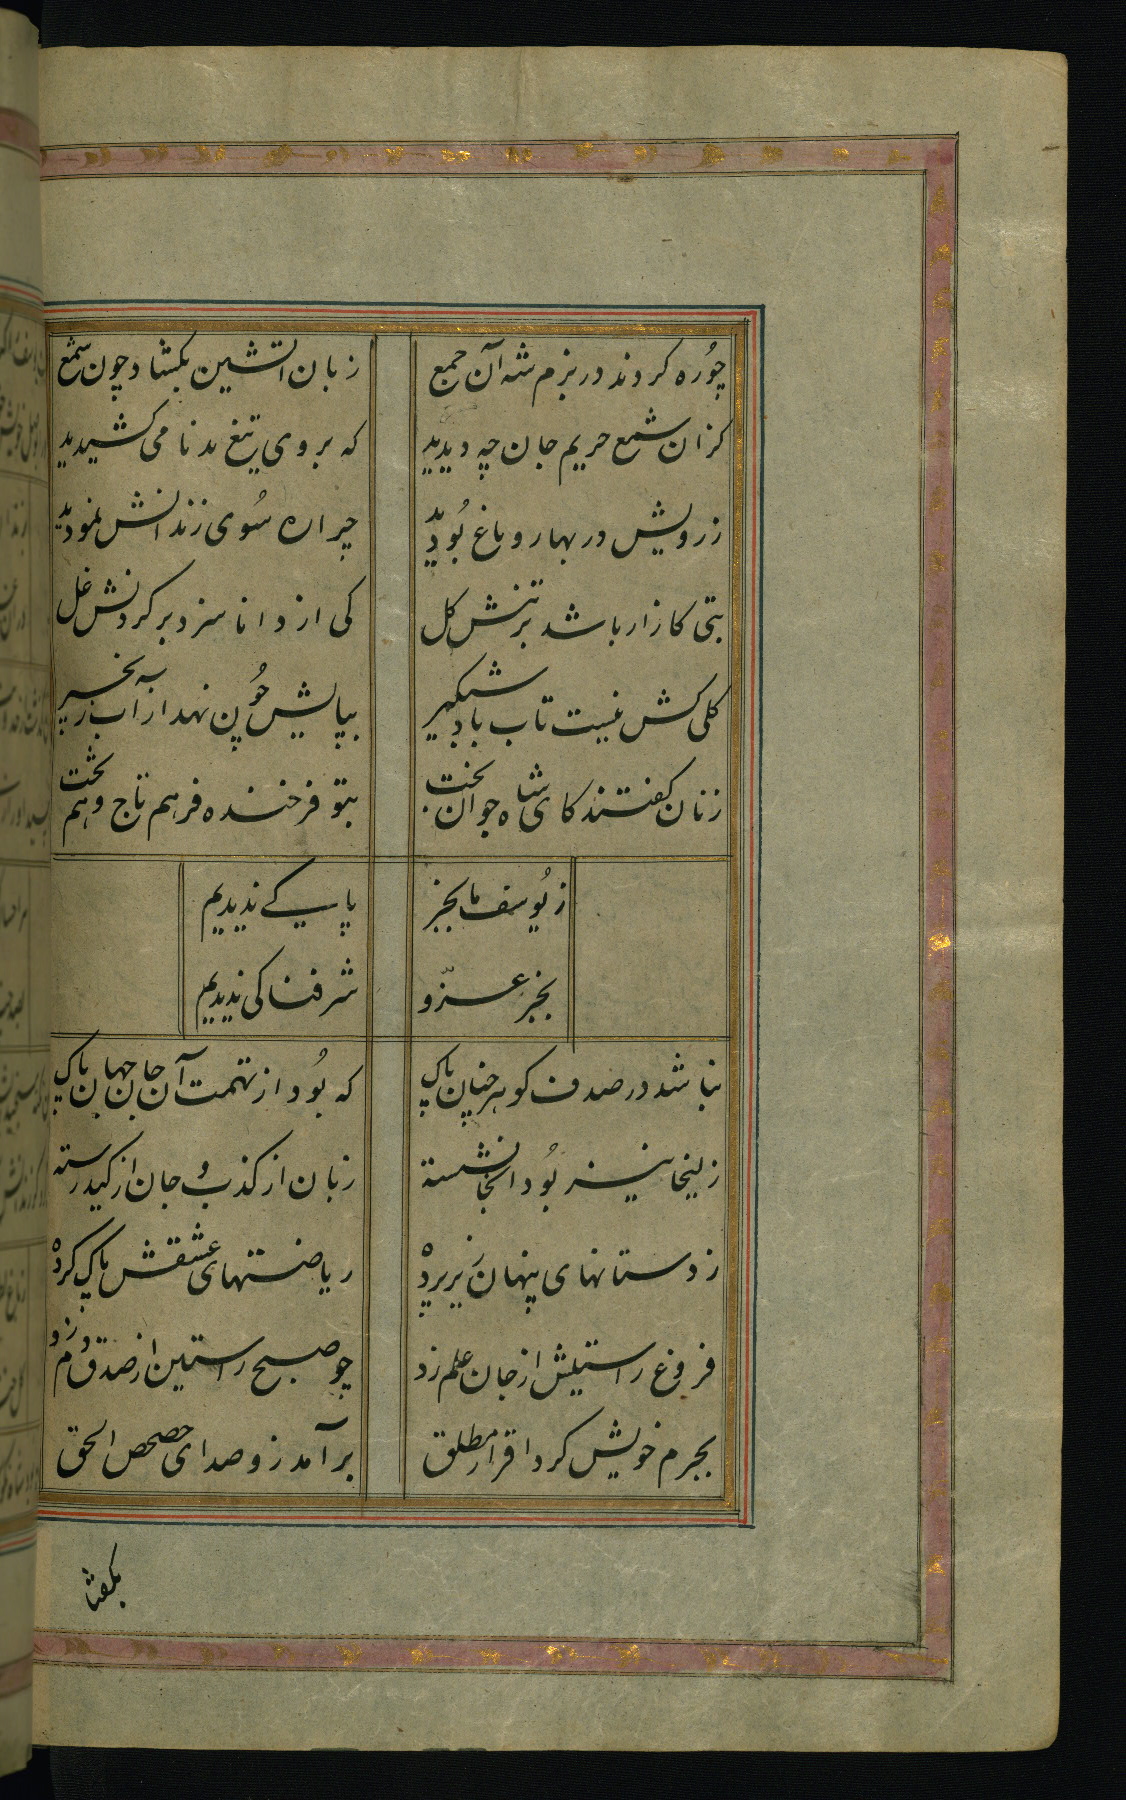 چو ره کردند در بزم شه آن جمع زبان آتشین بکشاد چون شمع
کزان شمع حریم جان چه دیدید که بر وی تیغ بدنامی کشیدید
ز رویش در بهار و باغ بودید چرا ره سوی زندانش نمودید
بتی کازار باشد بر تنش کل کی از دانا سزد بر کردنش غل
کلی کش نیست تاب باد شبکیر بپایش چون نهد از آب زنجیر
زنان کفتند کای شاه جوان بخت بتو فرخنده فر هم تاج و هم تخت
ز یوسف ما بجز پاکی ندیدیم
بجز عز و شرفناکی ندیدیم
نباشد در صدف کوهر چنان پاک که بود از تهمت آن جان جهان پاک
زلیخا نیز بود انجا نشسته زبان از کذب و جان از کید رسته
ز دستانهای پنهان زیر پرده ریاضتهای عشقش پاک کرده
فروغ راستیش از جان علم زد چو صبح راستین از صدق دم زد
بجرم خویش کرد اقرار مطلق برآمد زو صدای حصحص الحق
بکفتا